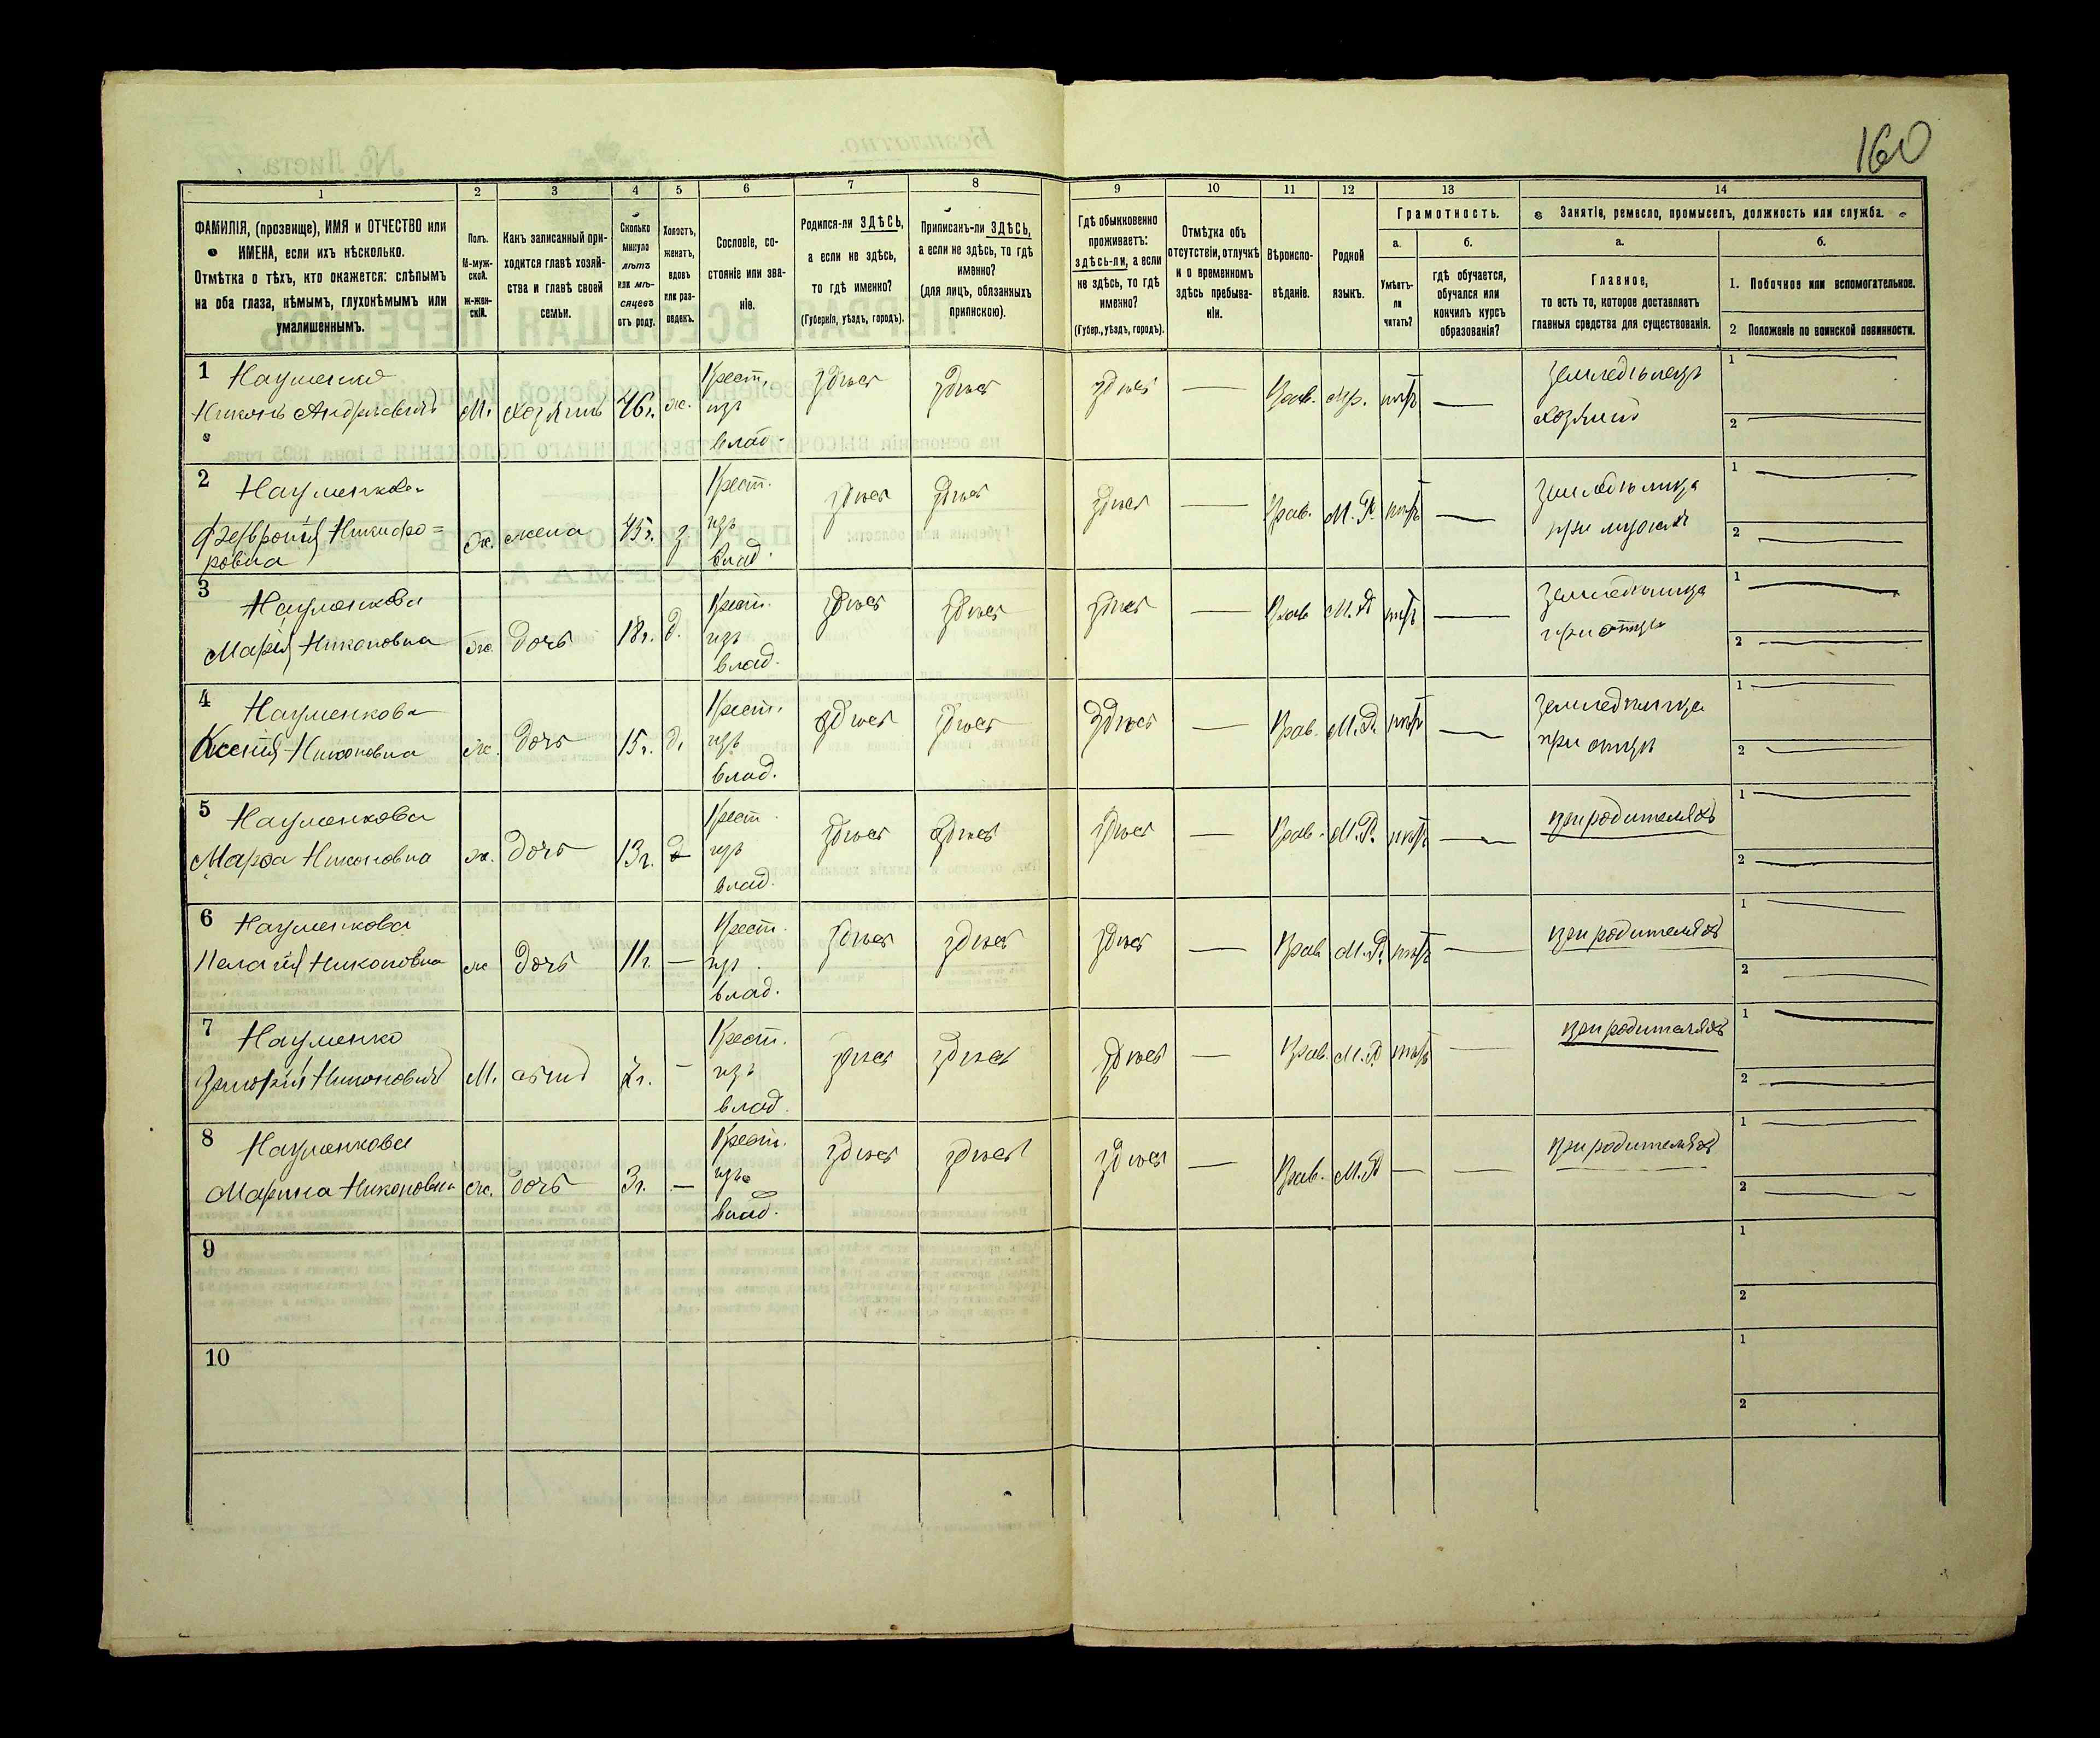 160
1
2
3
4
5
6
7
8
9
10
11
12
13
14
ФАМИЛІЯ, (прозвище), ИМЯ и ОТЧЕСТВО или
ИМЕНА, если ихъ нѣсколько.
Отмѣтка о тѣхъ, кто окажется: слѣпымъ
на оба глаза, нѣмымъ, глухонѣмымъ или
умалишеннымъ.
Полъ.
М-муж-
ской.
Ж-жен-
скій.
Какъ записанный при-
ходится главѣ хозяй-
ства и главѣ своей
семьи.
Сколько
минуло
лѣтъ
или мѣ-
сяцевъ
отъ роду.
Холостъ,
женатъ,
вдовъ
или раз-
веденъ.
Сословіе, со-
стояніе или зва-
ніе.
Родился-ли ЗДѢСЬ,
а если не здѣсь,
то гдѣ именно?
(Губернія, уѣздъ, городъ).
Приписанъ-ли ЗДѢСЬ,
а если не здѣсь, то гдѣ
именно?
(для лицъ, обязанныхъ
припискою).
Гдѣ обыкновенно
проживаетъ:
здѣсь-ли, а если
не здѣсь, то гдѣ
именно?
(Губер., уѣздъ, городъ).
Отмѣтка объ
отсутствіи, отлучкѣ
и о временномъ
здѣсь пребыва-
ніи.
Вѣроиспо-
вѣданіе.
Родной
языкъ.
Грамотность.
а.
Умѣетъ-
ли
читать?
б.
гдѣ обучается,
обучался или
кончилъ курсъ
образованія?
Занятіе, ремесло, промыселъ, должность или служба.
а.
Главное,
то есть то, которое доставляетъ
главныя средства для существованія.
б.
1. Побочное или вспомогательное.
2 Положеніе по воинской повинности.
1 Науменко
Никонъ Андреевичъ М. хозяинъ 46 г. ж. Крест. изъ влад. здѣсь здѣсь здѣсь — Прав. нѣтъ — земледѣлецъ хозяинъ 1 2
2 Науменкова
Февронія Никифо=
ровна ж. жена 45 г. з Крест. изъ влад. здѣсь здѣсь здѣсь — Прав. М. Р. нѣтъ — земледѣлица при мужѣ 1 2
3 Науменкова
Марія Никоновна ж. дочь 18 г. д. Крест. изъ влад. здѣсь здѣсь здѣсь — Прав М. Р нѣтъ — земледѣлица при отцѣ 1 2
4 Науменкова
Ксенія Никоновна ж. дочь 15 г. д. Крест. изъ влад. здѣсь здѣсь здѣсь — Прав. М. Р. нѣтъ — земледѣлица при отцѣ 1 2
5 Науменкова
Марфа Никоновна ж. дочь 13 г. Крест. изъ влад. здѣсь здѣсь здѣсь — Прав. М. Р. нѣтъ — при родителяхъ 1 2
6 Науменкова
Пелагія Никоновна ж дочь 11 г. — Крест. изъ влад. здѣсь здѣсь здѣсь — Прав М. Р. нѣтъ — при родителяхъ 1 2
7 Науменко
Григорій Никоновичъ М. сынъ — Крест. изъ влад. здѣсь здѣсь здѣсь — Прав. М. Р нѣтъ — при родителяхъ 1 2
8 Науменкова
Марина Никоновна ж. дочь 3 г. — Крест. изъ влад. здѣсь здѣсь здѣсь — Прав. М. Р — — при родителяхъ 1 2
9 1 2
10 1 2